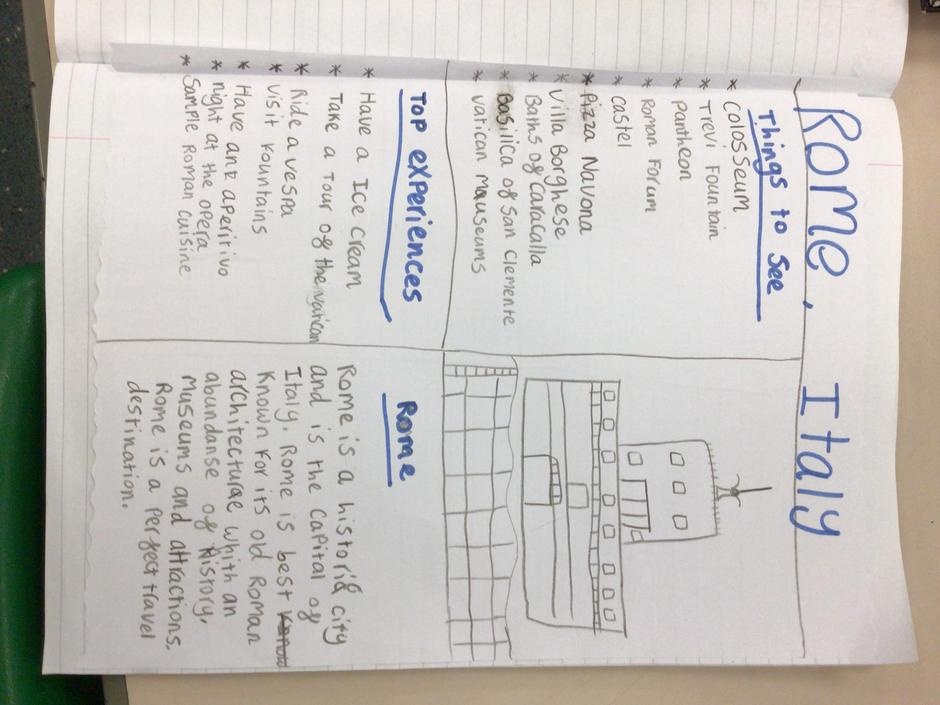 Rome, Italy
Things to See
* Colosseum
* Trevi Fountain
* Pantheon
* Roman Forum
* Castel
* Pizza Navona
* Villa Borghese
* Baths of Caracalla
* Basilica of San Clemente
* Vatican Mauseums
Top experiences
* Have a Ice cream
* Take a Tour of the vatican
* Ride a vespa
* Visit Fountains
* Have ank aperitivo
* night at the opera
* Sample Roman cuisine
Rome
Rome is a historic city
and is the capital of
Italy. Rome is best
Known For its old Roman
architecturae whith an
abundanse of history,
Museums and attractions.
Rome is a perfect travel
destination.